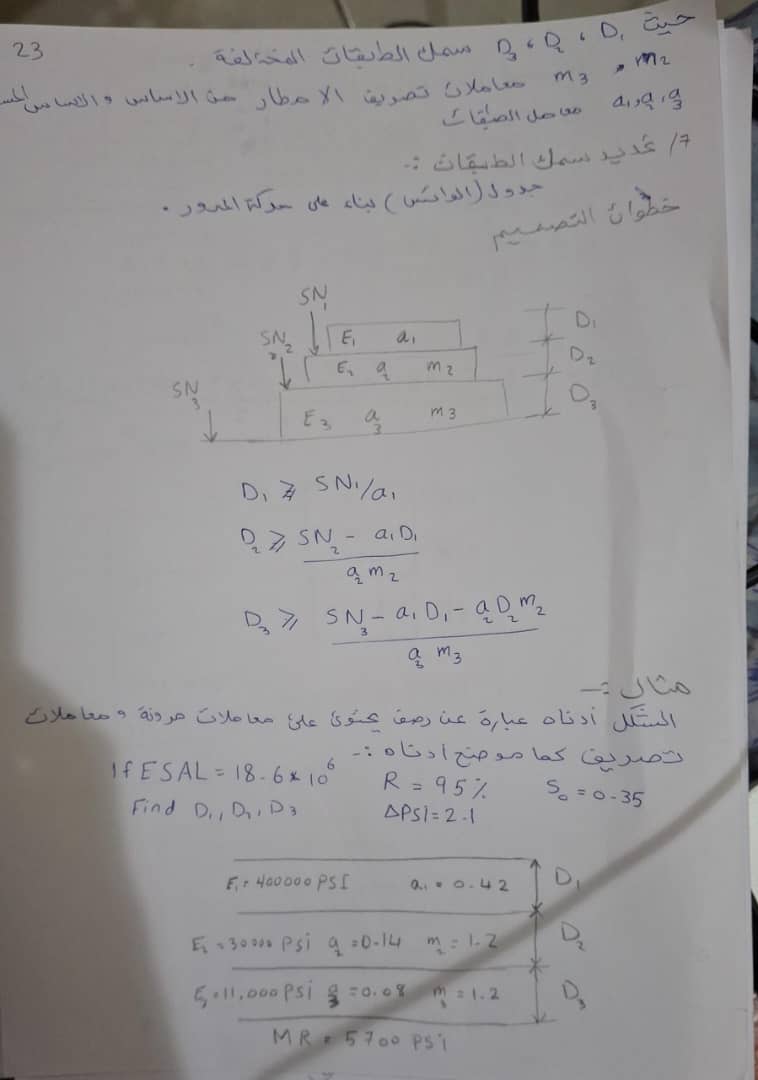 23
حيث D₁ ، D₂ ، D₃ سمك الطبقات المختلفة .
m₂ , m₃ معاملات تصريف الامطار من الاساس و الاساس
a₁, a₂, a₃ معامل الطبقات
7/ تحديد سمك الطبقات :-
جدول ( ) بناء على حركة المرور .
خطوات التصميم
SN₁
SN₂ E₁ a₁ D₁
E₂ a₂ m₂ D₂
SN₃ E₃ a₃ m₃ D₃
D₁ ⩾ SN₁/a₁
D₂ ⩾ SN₂ - a₁D₁
a₂ m₂
D₃ ⩾ SN₃ - a₁D₁ - a₂D₂m₂
a₃ m₃
مثال :-
الشكل أدناه عبارة عن رصف يحتوى على معاملات مرونة و معاملات
تصريف كما موضح ادناه :-
If ESAL = 18.6 x 10⁶ R = 95% S₀ = 0.35
Find D₁, D₂, D₃ ΔPSI = 2.1
E₁ = 400000 PSI a₁ = 0.42 D₁
E₂ = 30000 Psi a₂ = 0.14 m₂ = 1.2 D₂
E₃ = 11,000 Psi a₃ = 0.08 m₃ = 1.2 D₃
MR = 5700 psi